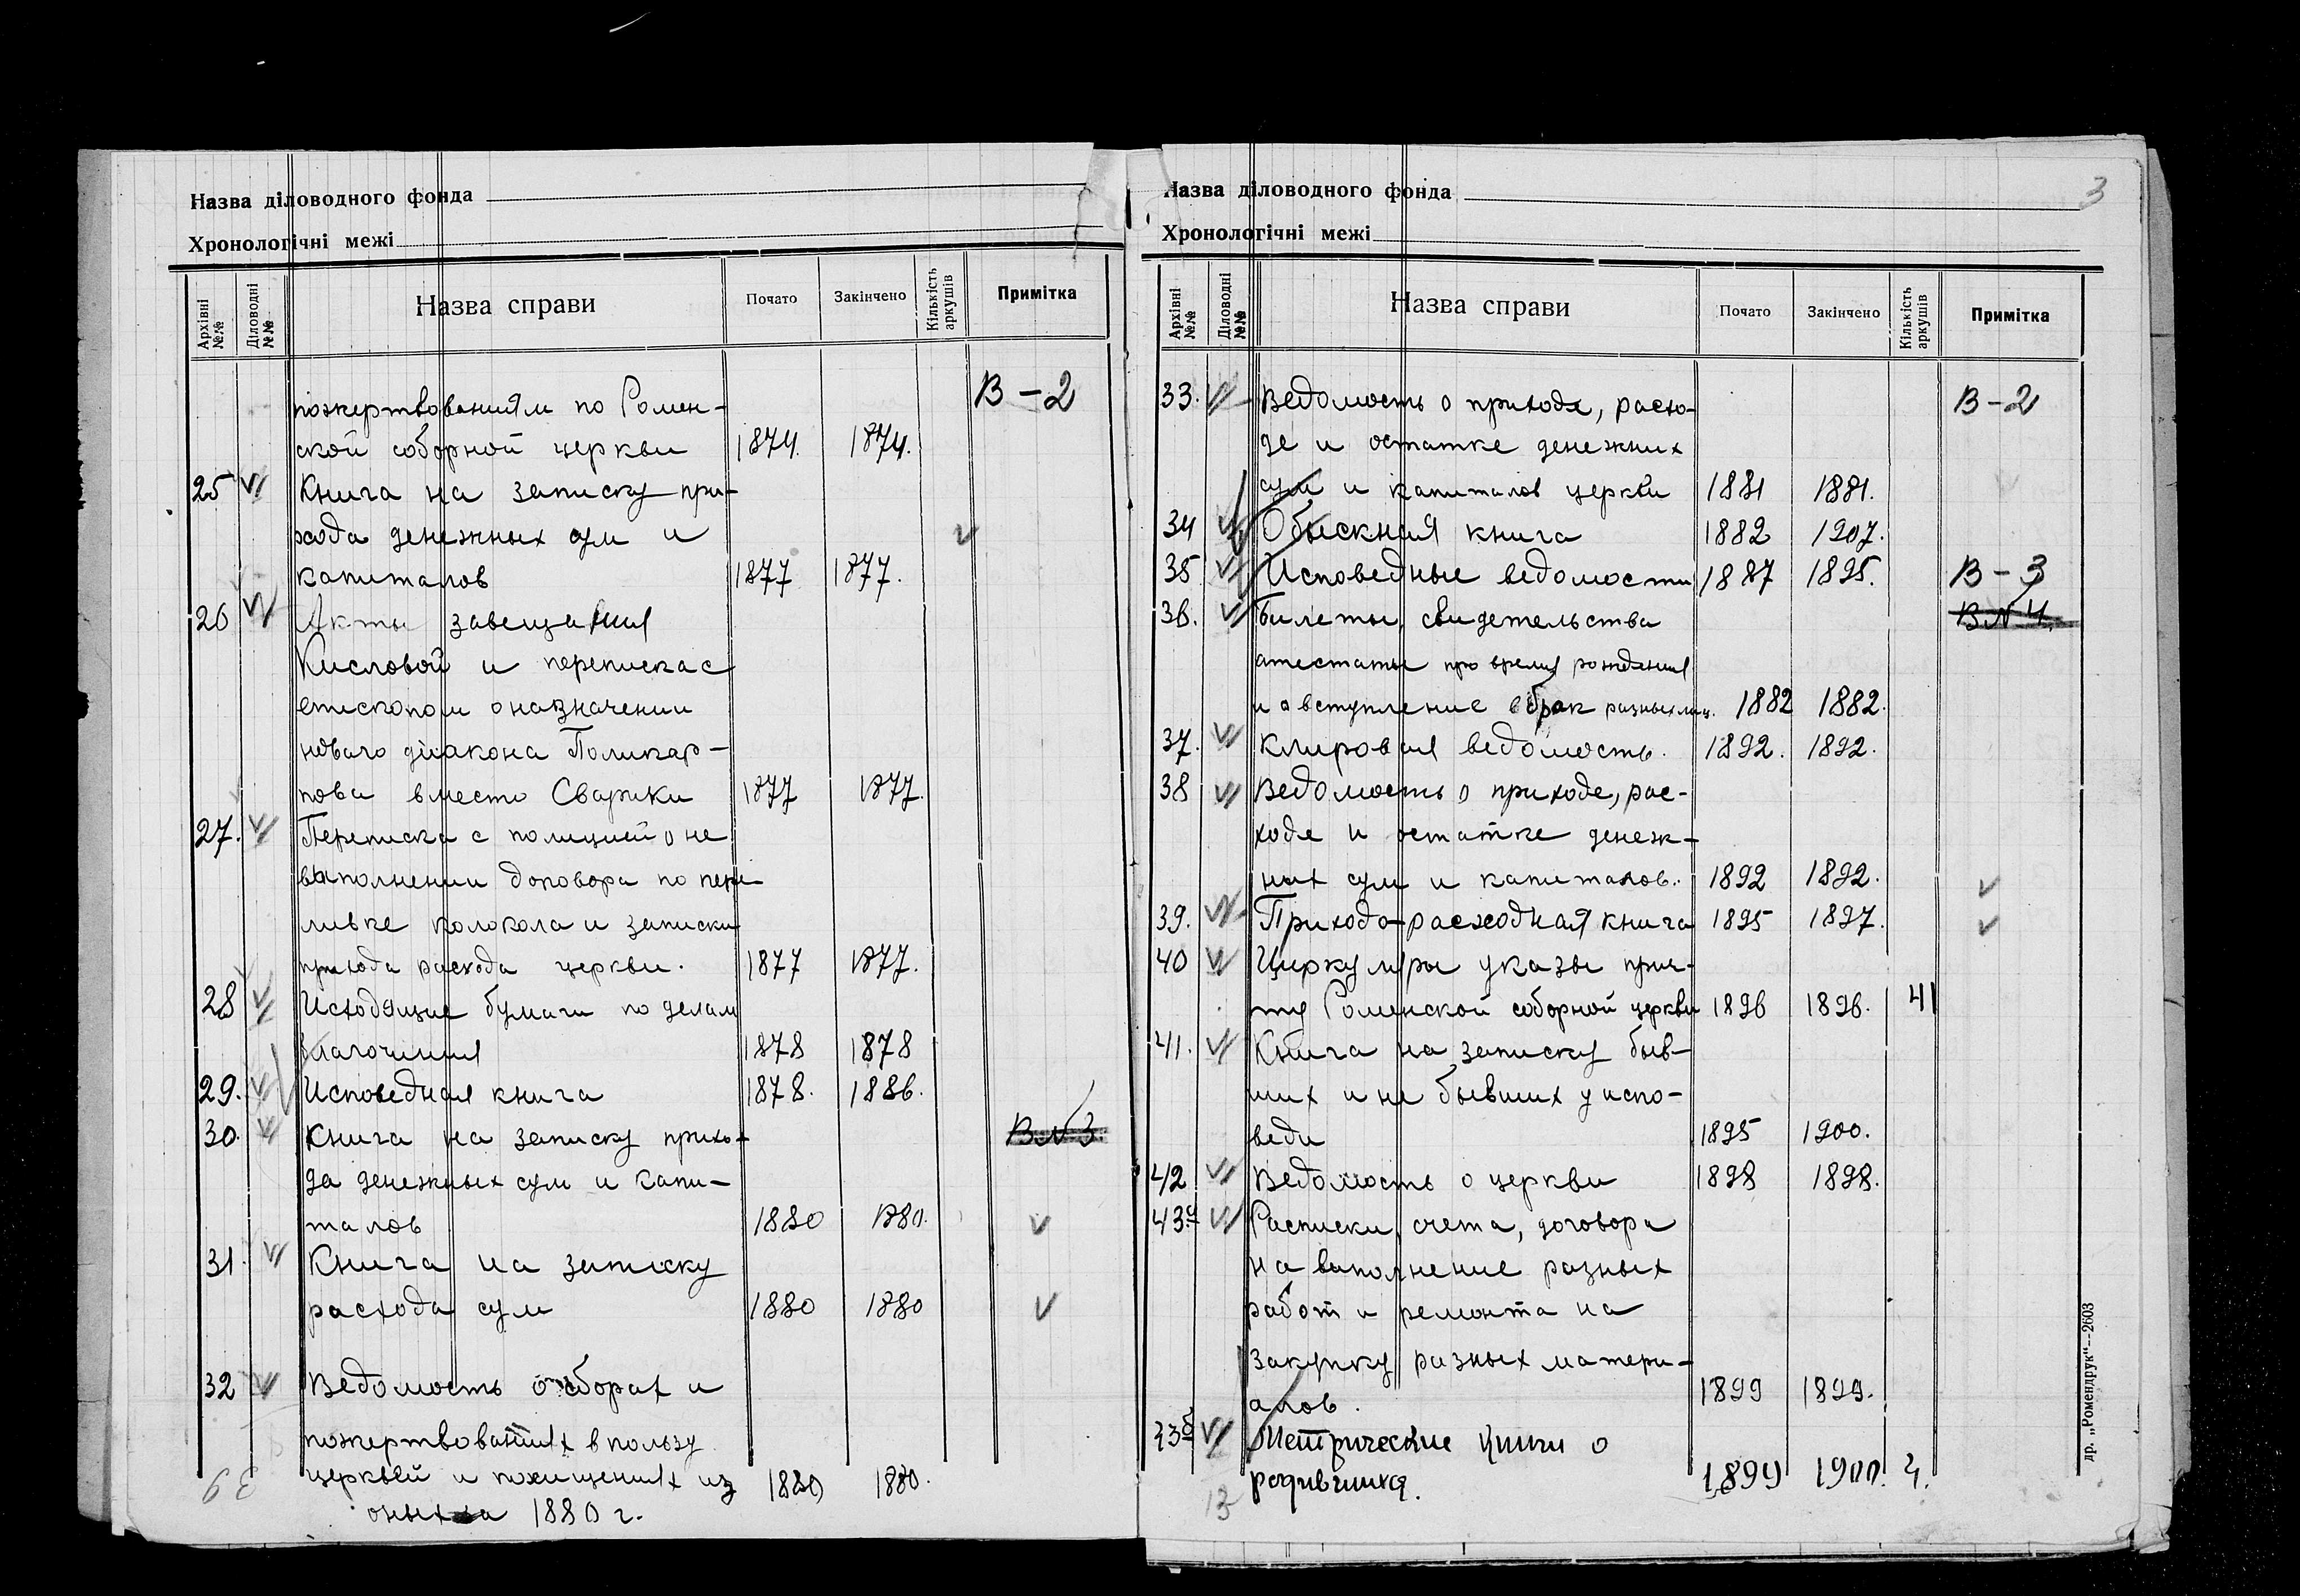 Назва діловодного фонда
Хронологічні межі
Архівні №№
Діловодні №№
Назва справи
Почато
Закінчено
Кількість аркушів
Примітка
пожертвованиям по Ромен- В-2
ской соборной церкви 1874. 1874.
25 Книга на записку при-
хода денежных сум и
капиталов 1877 1877.
26 Акты завещания
Кисловой и переписка с
епископом о назначении
новаго диакона Поликар-
пова вместо Сварики 1877 1877.
27. Переписка с полицией о не
выполнении договора по пере
ливке колокола и записки
прихода расхода церкви. 1877 1877.
28 Исходящие бумаги по делам
благочиния 1878 1878
29. Исповедная книга 1878. 1886.
30. Книга на записку прихо- В №3.
да денежных сум и капи-
талов 1880 1880.
31 Книга на записку
расхода сум 1880 1880
32 Ведомость о сборах и
пожертвованиях в пользу
церквей и похищениях из 1880 1880.
оных за 1880 г.
3
Назва діловодного фонда
Хронологічні межі
Архівні №№
Діловодні №№
Назва справи
Почато
Закінчено
Кількість аркушів
Примітка
33. Ведомость о приходе, расхо- В-2
де и остатке денежних
сум и капиталов церкви 1881 1881.
34 Обыскная книга 1882 1907.
35 Исповедные ведомости 1887 1895. В-3
36. Билеты, свидетельства В №4.
атестаты про время рождения
и о вступление в брак разных лиц. 1882 1882.
37. Клировая ведомость. 1892. 1892.
38 Ведомость о приходе, рас-
ходе и остатке денеж-
ных сум и капиталов. 1892 1892.
39. Приходо-расходная книга 1895 1897.
40 Циркуляры указы прич-
ту Роменской соборной церкви 1896 1896. 41
41. Книга на записку быв-
ших и не бывших у испо-
веди 1895 1900.
42 Ведомость о церкви 1898 1898.
43а Расписки, счета, договора
на выполнение разных
работ и ремонта на
закупку разных матери-
алов. 1899 1899.
43б Метрические книги о
родившихся. 1899 1900. 4.
13
др. „Ромендрук"--2603